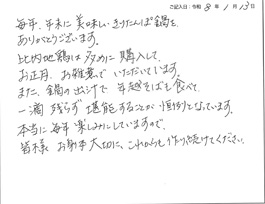 ご記入日：令和 8年 1月 13日
毎年、年末に美味しいきりたんぽ鍋を、
ありがとうございます。
比内地鶏は多めに購入して、
お正月、お雑煮でいただいています。
また、鍋の出汁で年越そばも食べて、
一滴残らず堪能することが恒例となっています。
本当に毎年楽しみにしていますので、
皆様 お身体大切に、これからも作り続けてください。